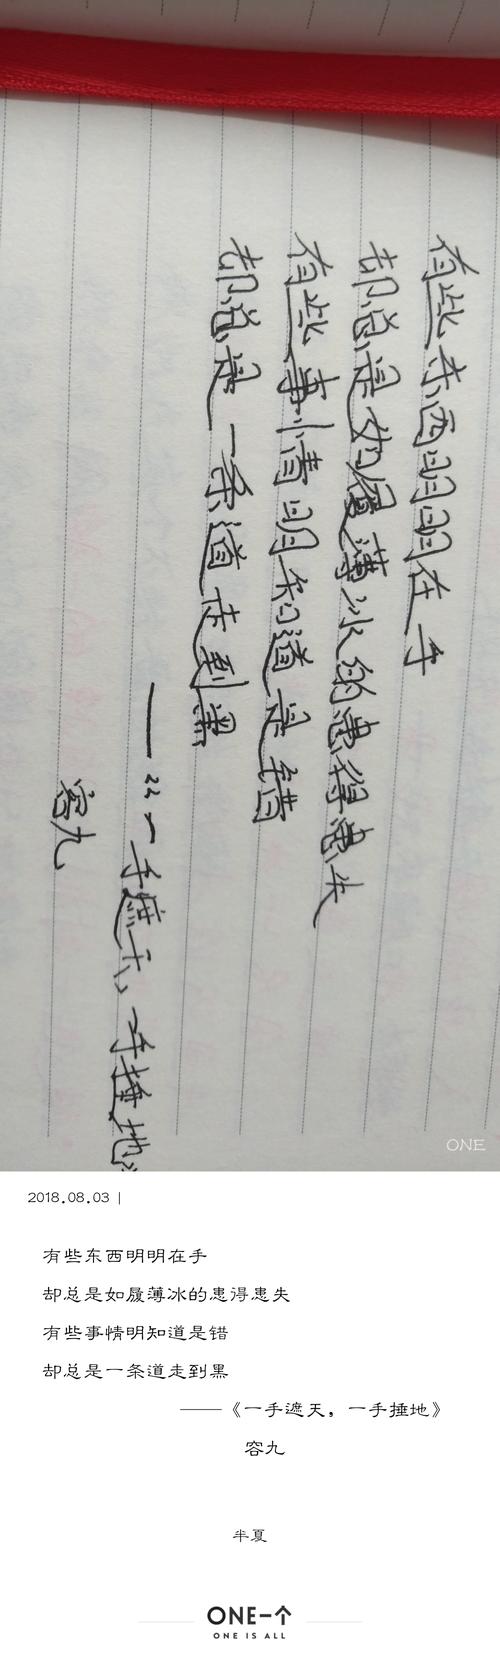 有些东西明明在手
却总是如履薄冰的患得患失
有些事情明知道是错
却总是一条道走到黑
——《一手遮天,一手捶地》
容九
ONE
2018.08.03 |
有些东西明明在手
却总是如履薄冰的患得患失
有些事情明知道是错
却总是一条道走到黑
——《一手遮天，一手捶地》
容九
半夏
ONE一个
ONE IS ALL